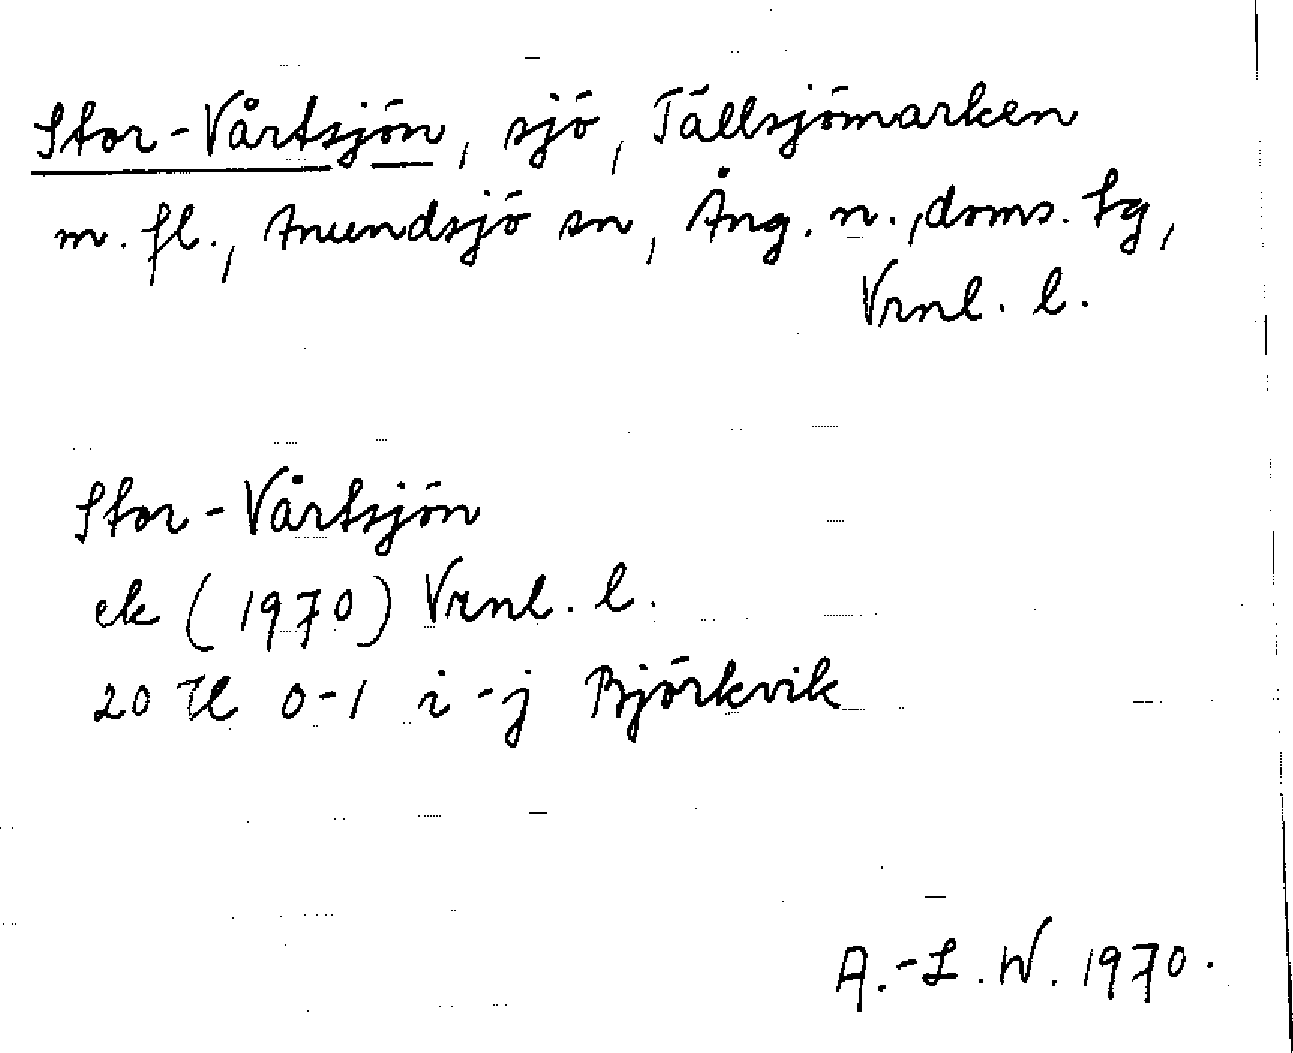 Stor-Vårtsjön, sjö, Tällsjömarken
m. fl., Anundsjö sn, Ång. n., doms. tg,
Vrnl. l.
Stor-Vårtsjön
ek (1970) Vrnl. l.
20 H 0-1 i-j Björkvik
A.-L. W. 1970.